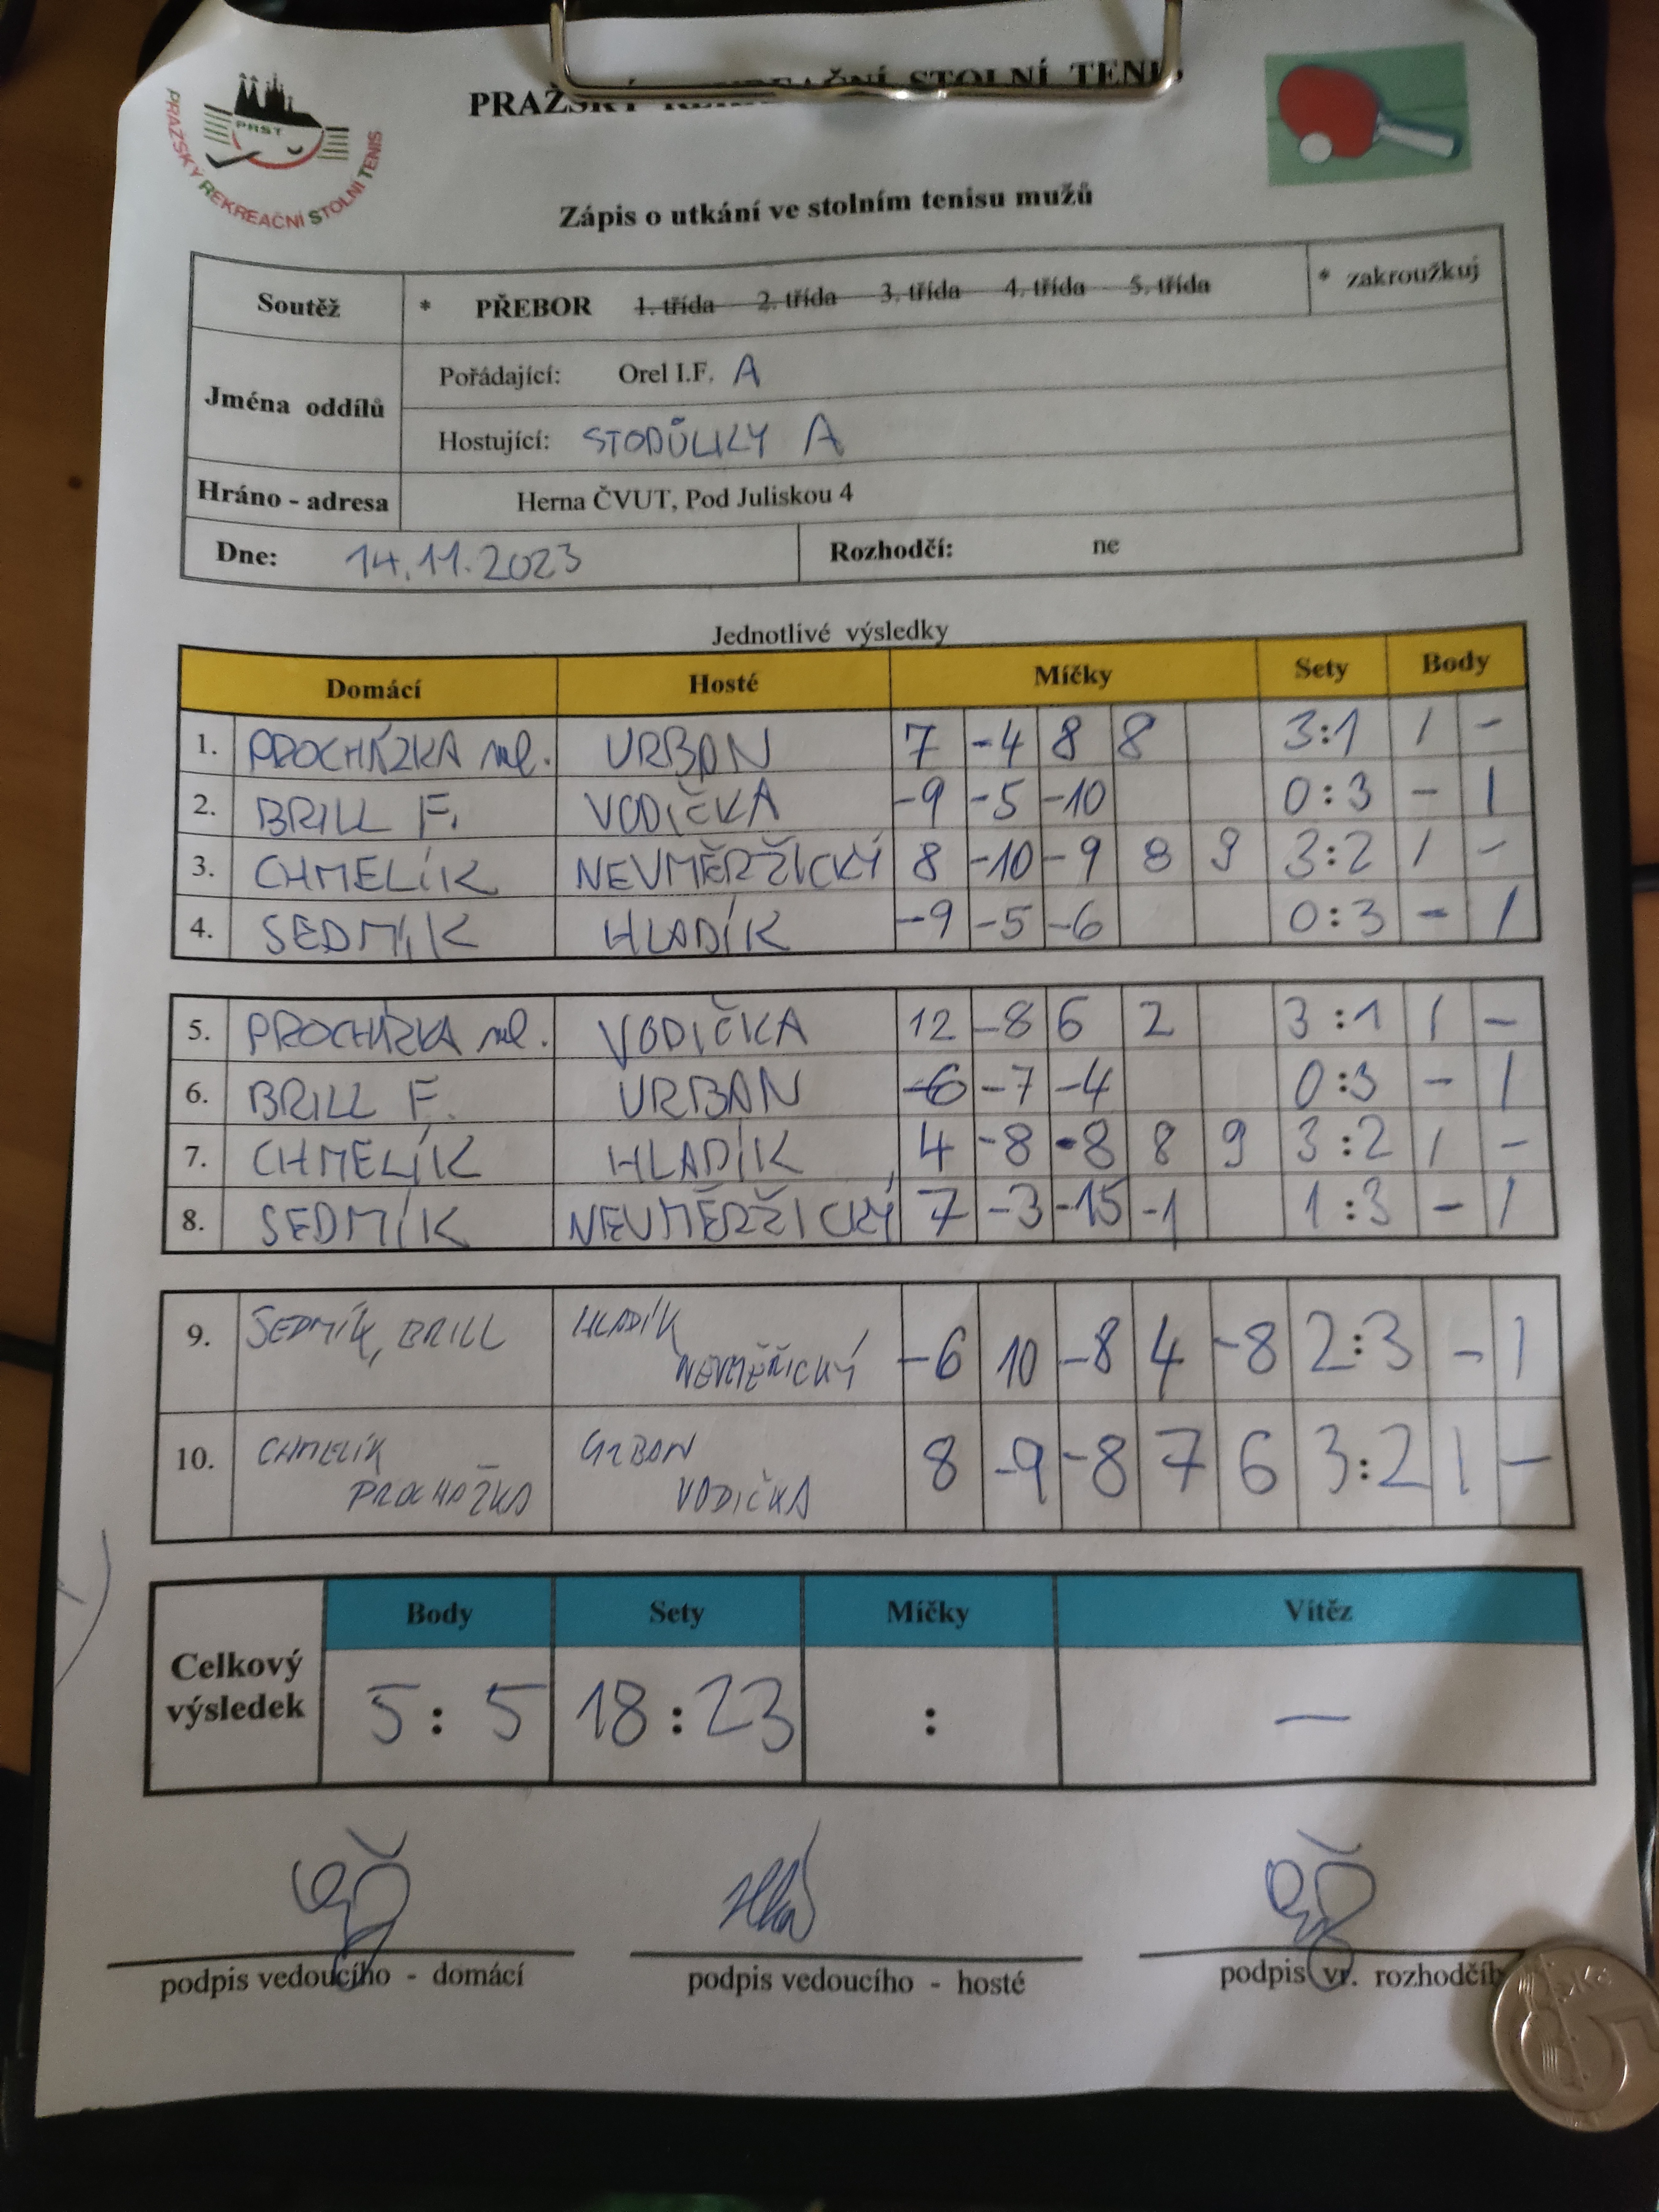 PRAŽSKÝ REKREAČNÍ STOLNÍ TENIS
PRST
PRAŽSKÝ REKREAČNÍ STOLNÍ TENIS
Zápis o utkání ve stolním tenisu mužů
Soutěž * PŘEBOR 1. třída 2. třída 3. třída 4. třída 5. třída * zakroužkuj
Jména oddílů
Pořádající: Orel I.F. A
Hostující: STODŮLKY A
Hráno - adresa Herna ČVUT, Pod Juliskou 4
Dne: 14.11.2023 Rozhodčí: ne
Jednotlivé výsledky
Domácí Hosté Míčky Sety Body
1. PROCHÁZKA ml. URBAN 7 -4 8 8 3:1 1 -
2. BRILL F. VODIČKA -9 -5 -10 0:3 - 1
3. CHMELÍK NEVMĚRŽICKÝ 8 -10 -9 8 9 3:2 1 -
4. SEDMÍK HLADÍK -9 -5 -6 0:3 - 1
5. PROCHÁZKA ml. VODIČKA 12 -8 6 2 3:1 1 -
6. BRILL F. URBAN -6 -7 -4 0:3 - 1
7. CHMELÍK HLADÍK 4 -8 -8 8 9 3:2 1 -
8. SEDMÍK NEVMĚRŽICKÝ 7 -3 -15 -1 1:3 - 1
9. SEDMÍK, BRILL HLADÍK
NEVMĚŘICKÝ -6 10 -8 4 -8 2:3 - 1
10. CHMELÍK URBAN
PROCHÁZKA VODIČKA 8 -9 -8 7 6 3:2 1 -
Body Sety Míčky Vítěz
Celkový
výsledek 5:5 18:23 : —
podpis vedoucího - domácí podpis vedoucího - hosté podpis vr. rozhodčíh
5 Kč